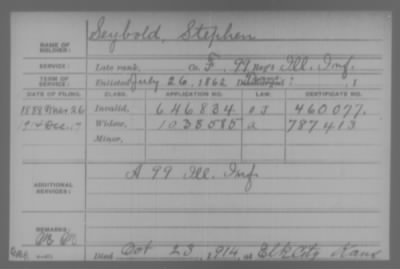 Seybold, Stephen
NAME OF SOLDIER:
SERVICE: Late rank, Co. F, 99 Regt Ill. Inf.
TERM OF SERVICE: Enlisted July 26, 1862
DATE OF FILING. CLASS. APPLICATION NO. LAW. CERTIFICATE NO.
1888 Mar 26 Invalid, 646834 460077.
Dec. Widow, 1038085 a 787413
Minor,
ADDITIONAL SERVICES: A 99 Ill. Inf.
REMARKS:
Died Oct 23, 1914, at Elk City Kans